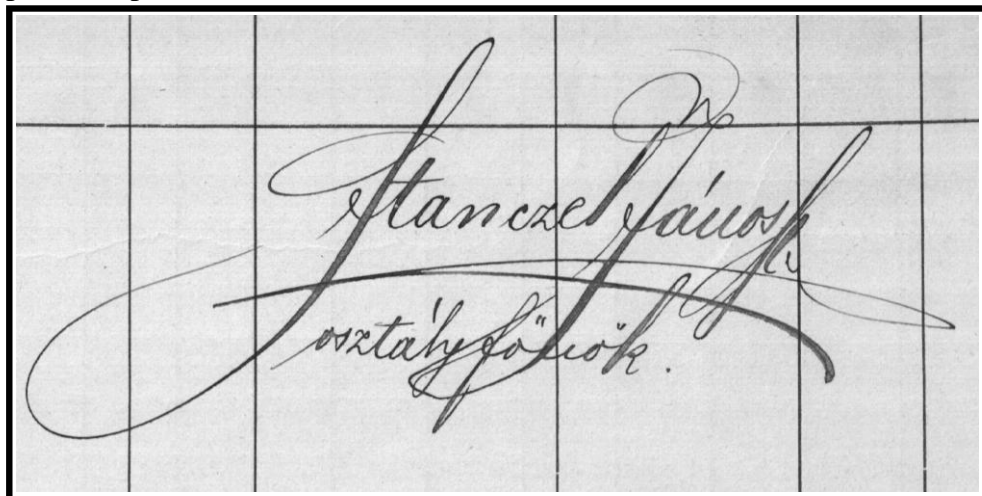 Stanczel János
osztályfőnök.